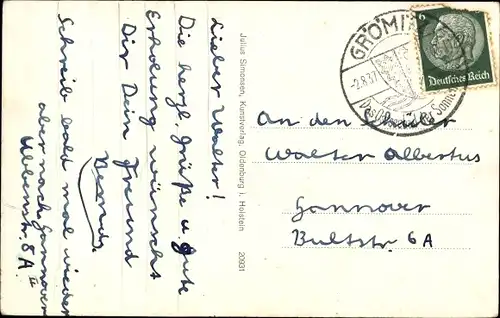 Lieber Walter!
Die herzl. Grüße u. gute
Erholung wünscht
Dir Dein Freund
Werner
Schreib bald mal wieder
aber nach Hannover
8A II
Julius Simonsen, Kunstverlag, Oldenburg i. Holstein
20931
GRÖMI
-2.8.37
Das
Sonne
6
Deutsches Reich
An den Schüler
Walter Albertus
Hannover
Bultstr. 6A